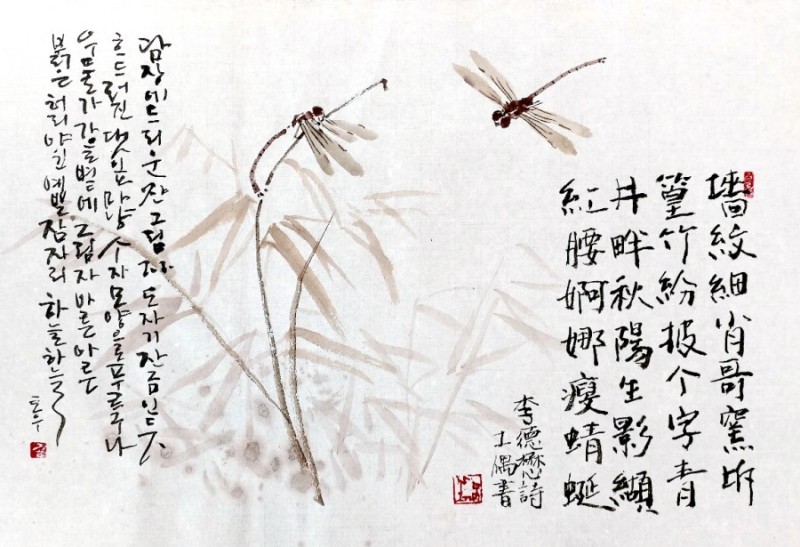 墻紋細肖哥窯坼
篁竹紛披个字青
井畔秋陽生影纈
紅腰婀娜瘦蜻蜓
李德懋詩
土偶書
담장에 드리운 잔그림자 도자기 잔금인 듯
흐드러진 댓잎마냥 个자 모양으로 푸르구나
우물가 가을볕에 그림자 아른아른
붉은 허리 야윈 예쁜 잠자리 하늘하늘
토우